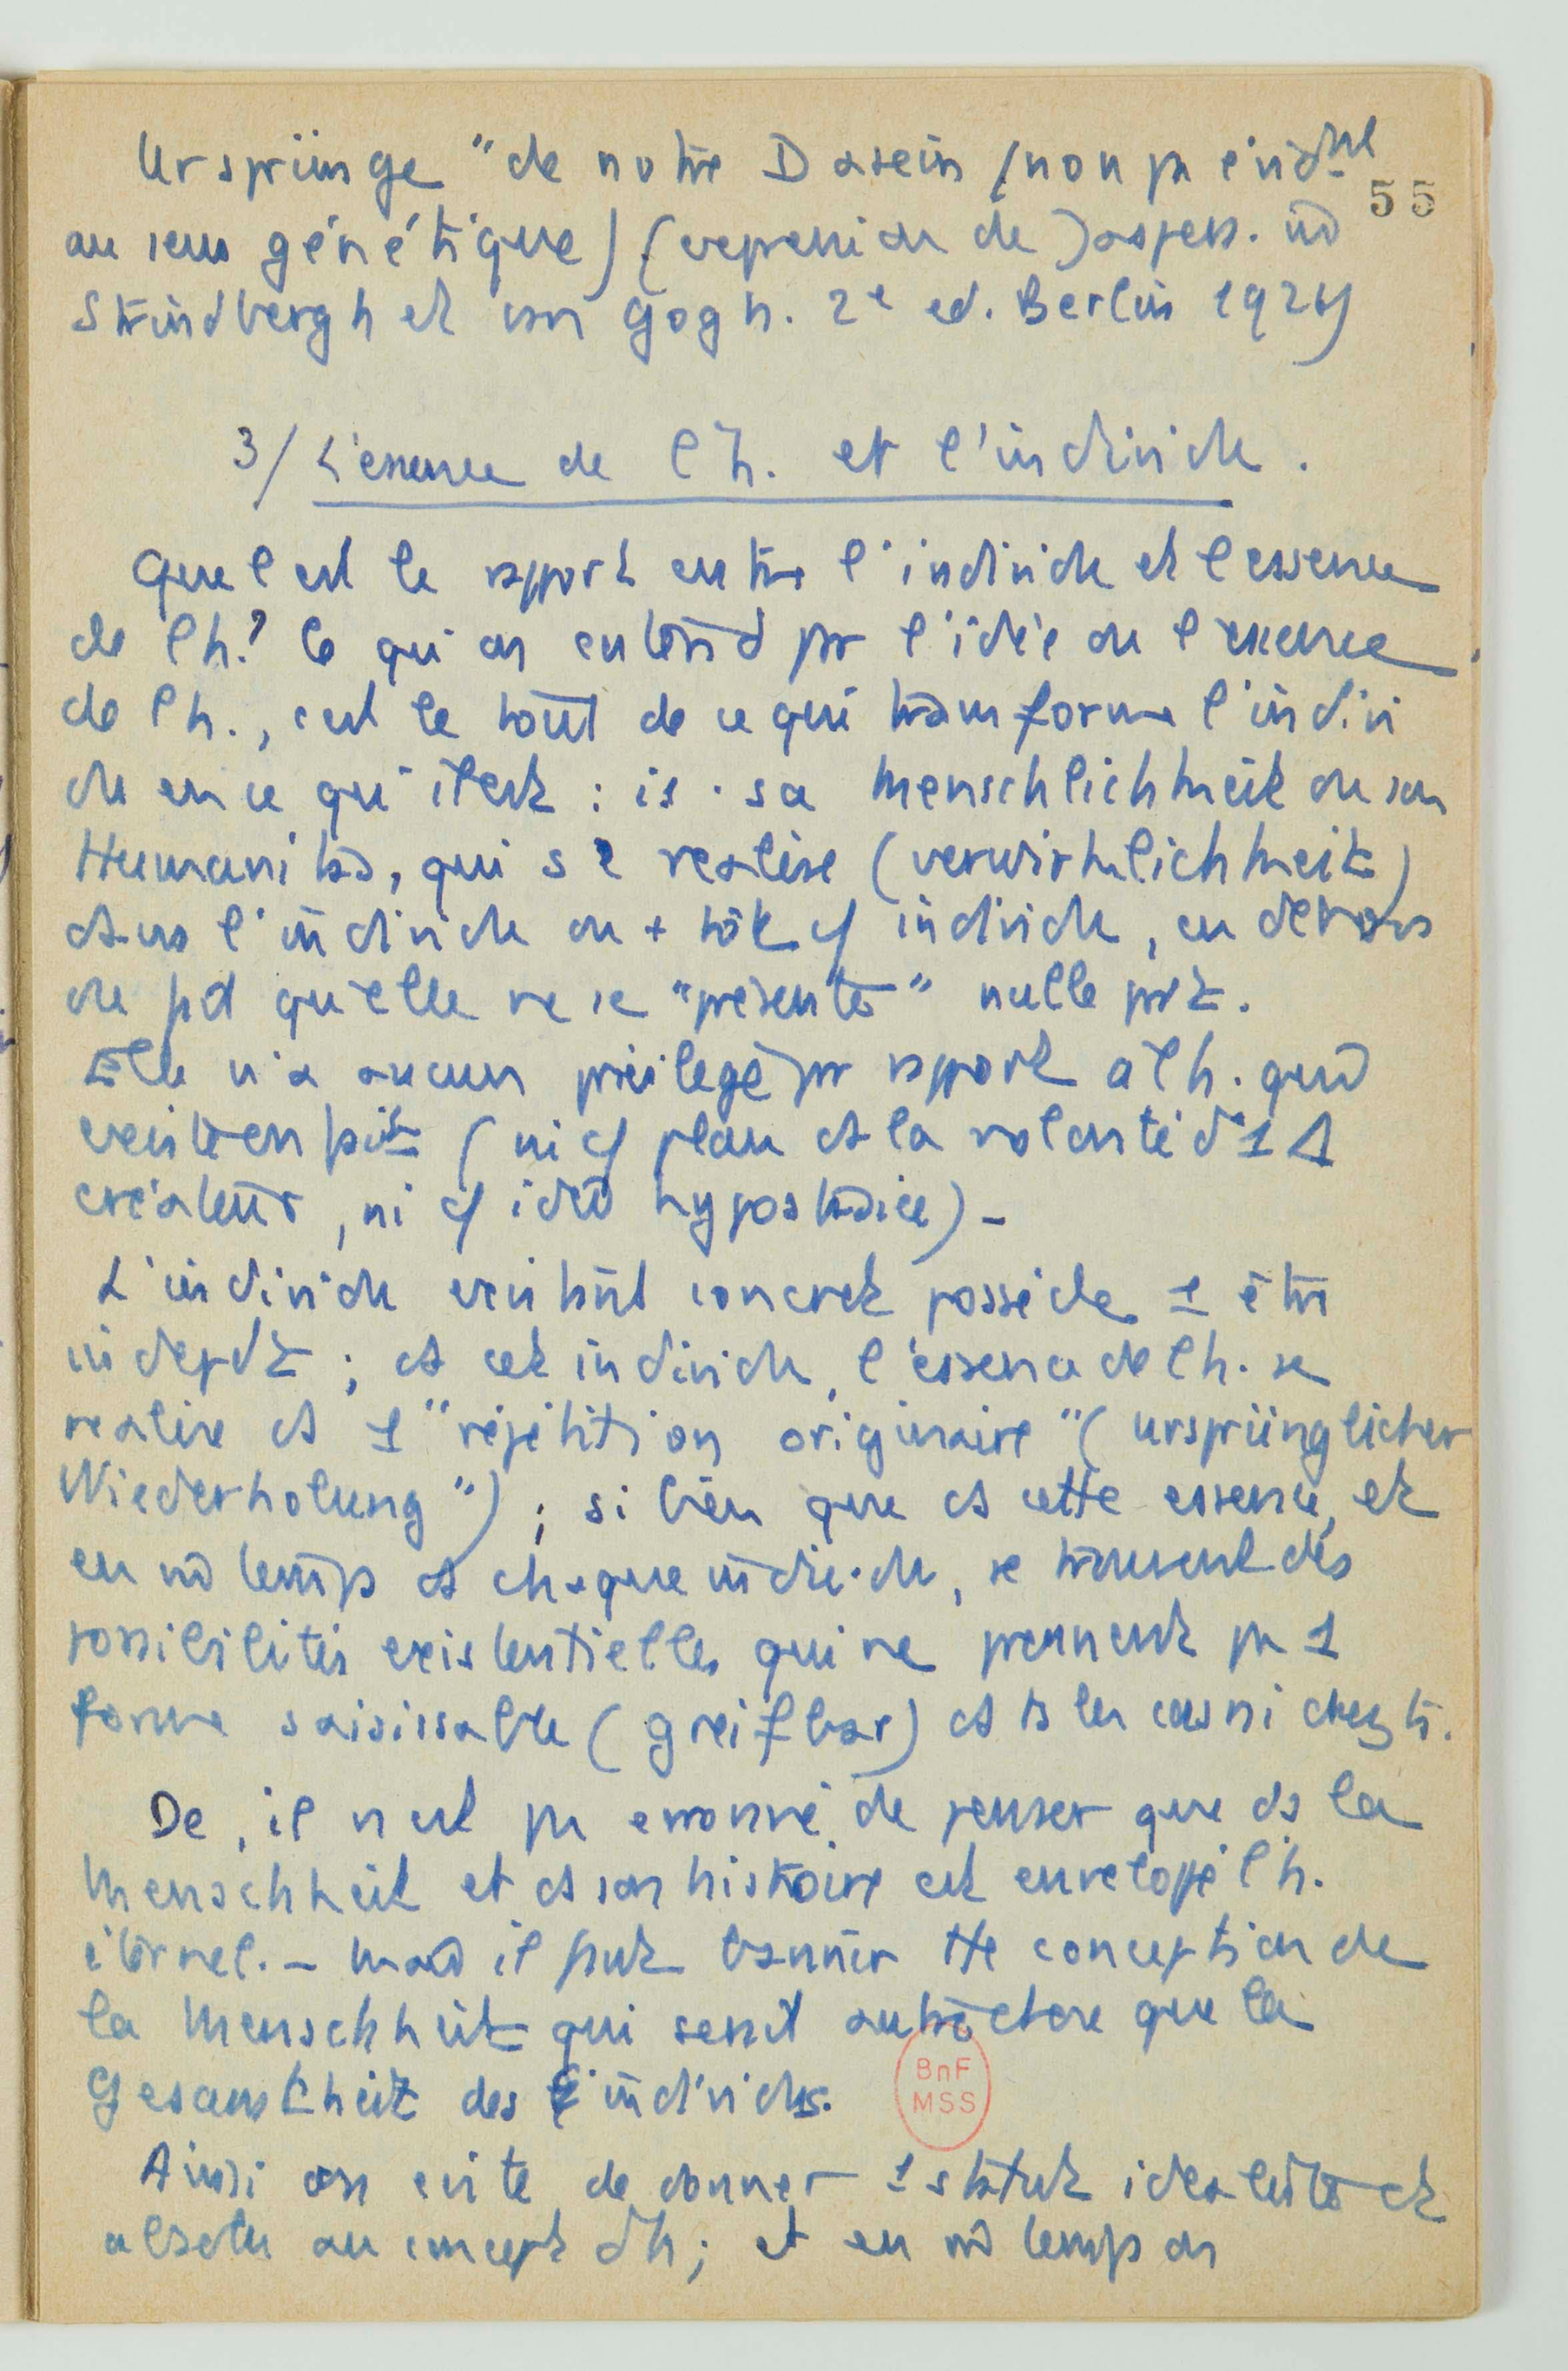 Ursprünge" de notre Dasein (non pas
55
au sens génétique) (expression de Jaspers.
Strindbergh et van Gogh. 2e ed. Berlin 192
3/ L'essence de l'h. et l'individu.
Quel est le rapport entre l'individu et l'essence
de l'h.? Ce qu'on entend par l'idée ou l'essence
de l'h., c'est le tout de ce qui transforme l'indivi
du en ce qu'il est : i.e. sa Menschlichkeit ou son
Humanitas, qui se realise (verwirklichkeit)
dans l'individu ou + tôt cf individu, en dehors
du qu'elle ne se "présente" nulle part.
Elle n'a aucun privilege par rapport à l'h. qui
(ni cf plan ds la volonté d'1
créateur, ni cf idée hypostasiée) -
L'individu existant concret possède 1 être
indepdt ; ds cet individu, l'essence de l'h. se
realise ds 1 "répétition originaire" (ursprünglicher
Wiederholung") ; si bien que ds cette essence, et
en m temps ds chaque individu, se trouvent des
possibilités existentielles qui ne prennent pas 1
forme saisissable (greifbar) ds ts les cas ni chez ts.
De , il n'est pas erronné de penser que ds la
Menschheit et ds son histoire est enveloppé l'h.
éternel. - Mais il faut bannir tte conception de
la Menschheit qui serait autre chose que la
Gesamtheit des individus.
Ainsi on evite de donner 1 statut idealiste et
absolu au concept d'h; et en m temps on
BnF
MSS